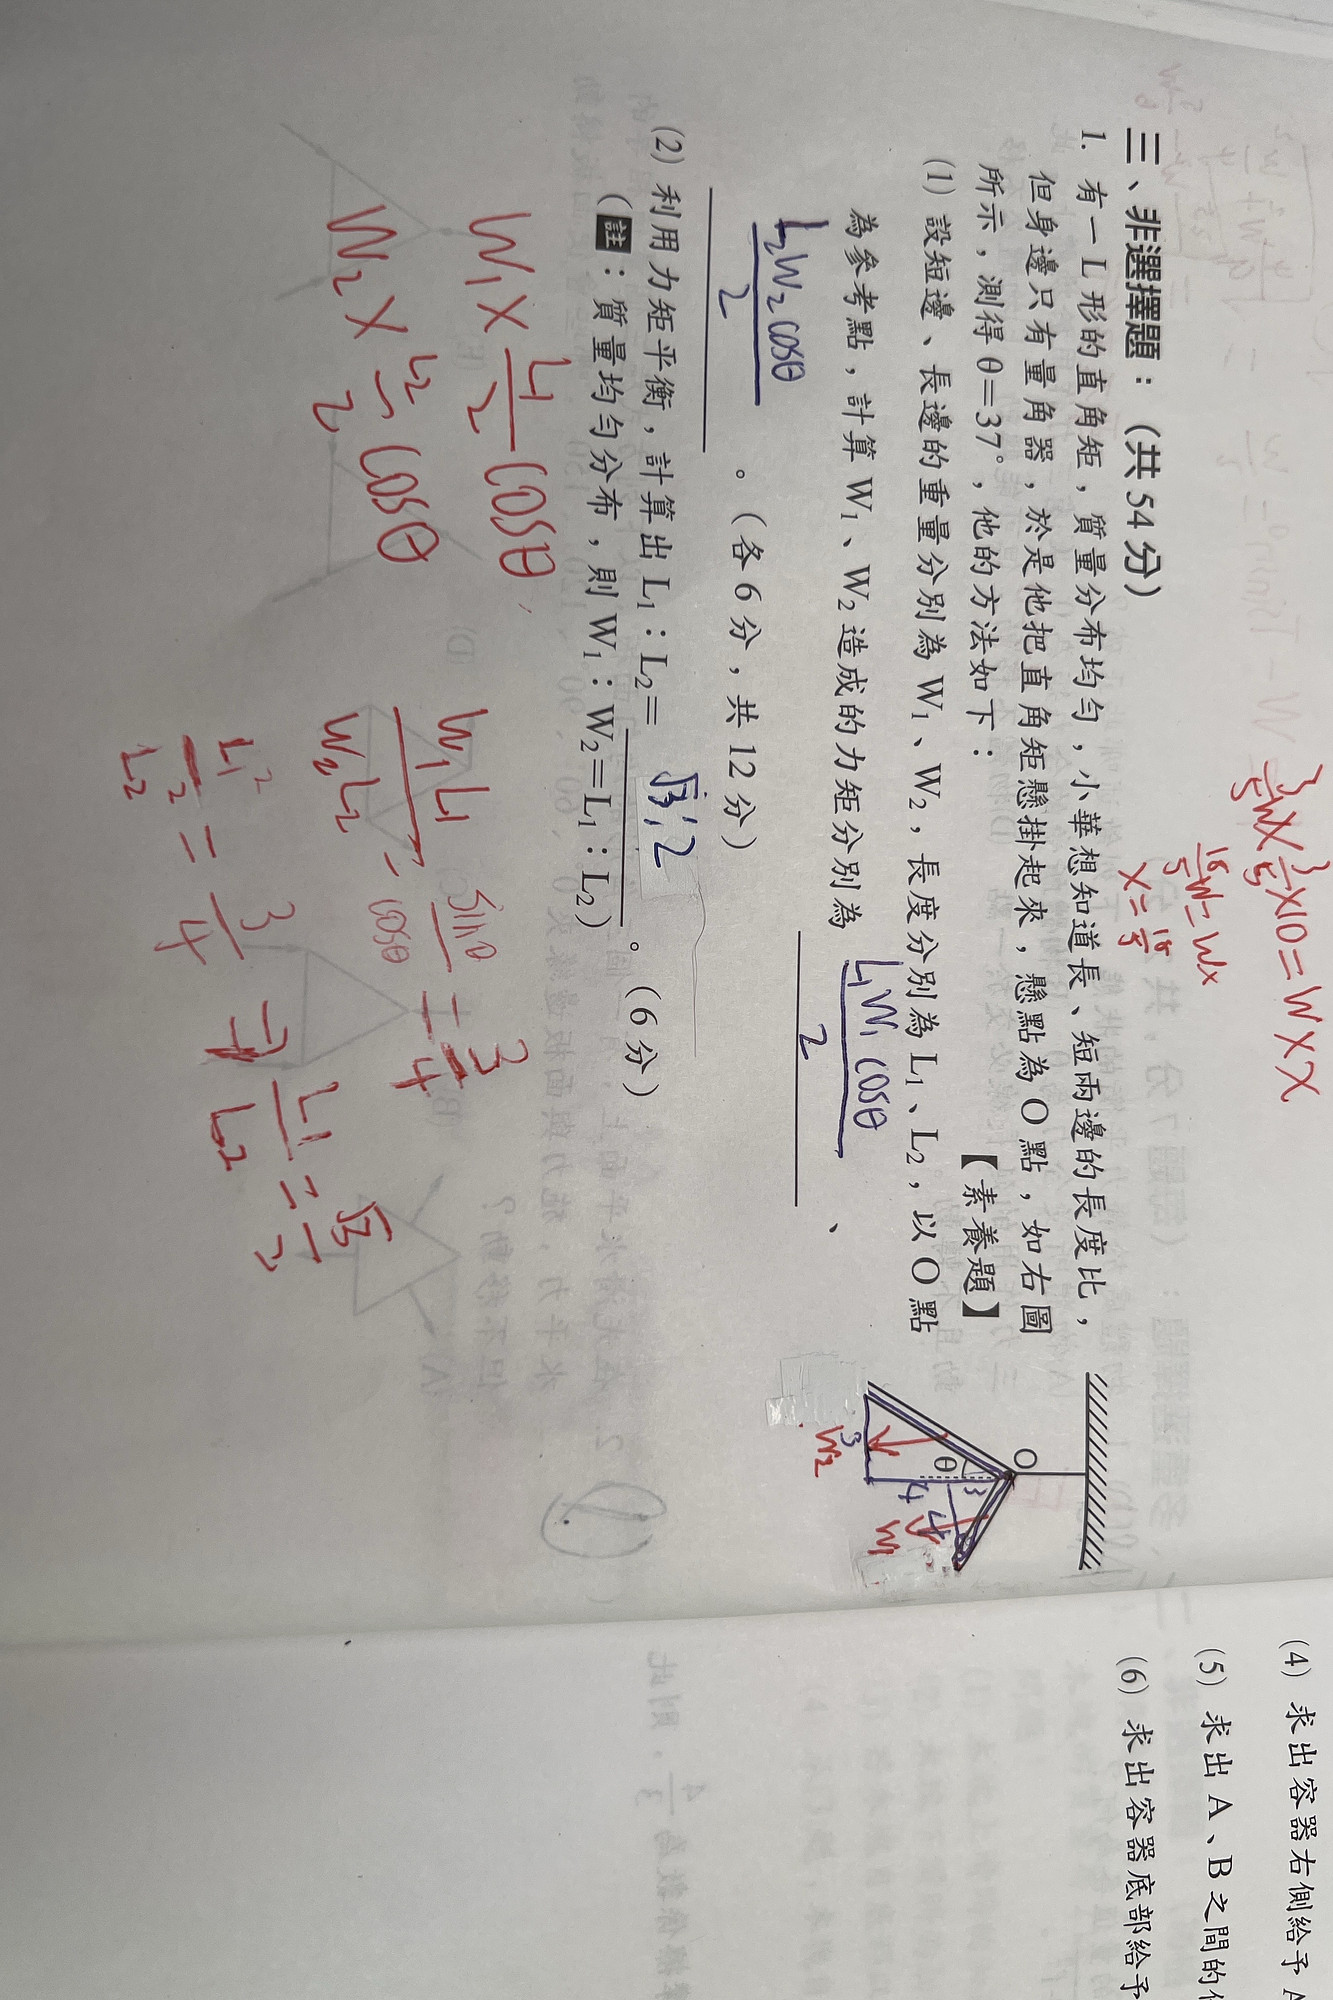 三、非選擇題：（共 54 分）
1. 有一 L 形的直角矩，質量分布均勻，小華想知道長、短兩邊的長度比，
但身邊只有量角器，於是他把直角矩懸掛起來，懸點為 O 點，如右圖
所示，測得 θ＝37°，他的方法如下： 【素養題】
(1) 設短邊、長邊的重量分別為 W₁、W₂，長度分別為 L₁、L₂，以 O 點
為參考點，計算 W₁、W₂ 造成的力矩分別為 L₁W₁cosθ/2 、
L₂W₂cosθ/2 。（各 6 分，共 12 分）
(2) 利用力矩平衡，計算出 L₁：L₂＝ √3:2 。（6 分）
（註：質量均勻分布，則 W₁：W₂＝L₁：L₂）
W₁×L₁/2 cosθ
W₂×L₂/2 cosθ
W₁L₁/W₂L₂ = sinθ/cosθ = 3/4
L₁²/L₂² = 3/4 L₁/L₂ = √3/2
3/5W×3/5×10=W×X
18/5W=WX
X=18/5
O
θ
3
4
3
4
W₂
W₁
(4) 求出容器右側給予 A
(5) 求出 A、B 之間的
(6) 求出容器底部給予